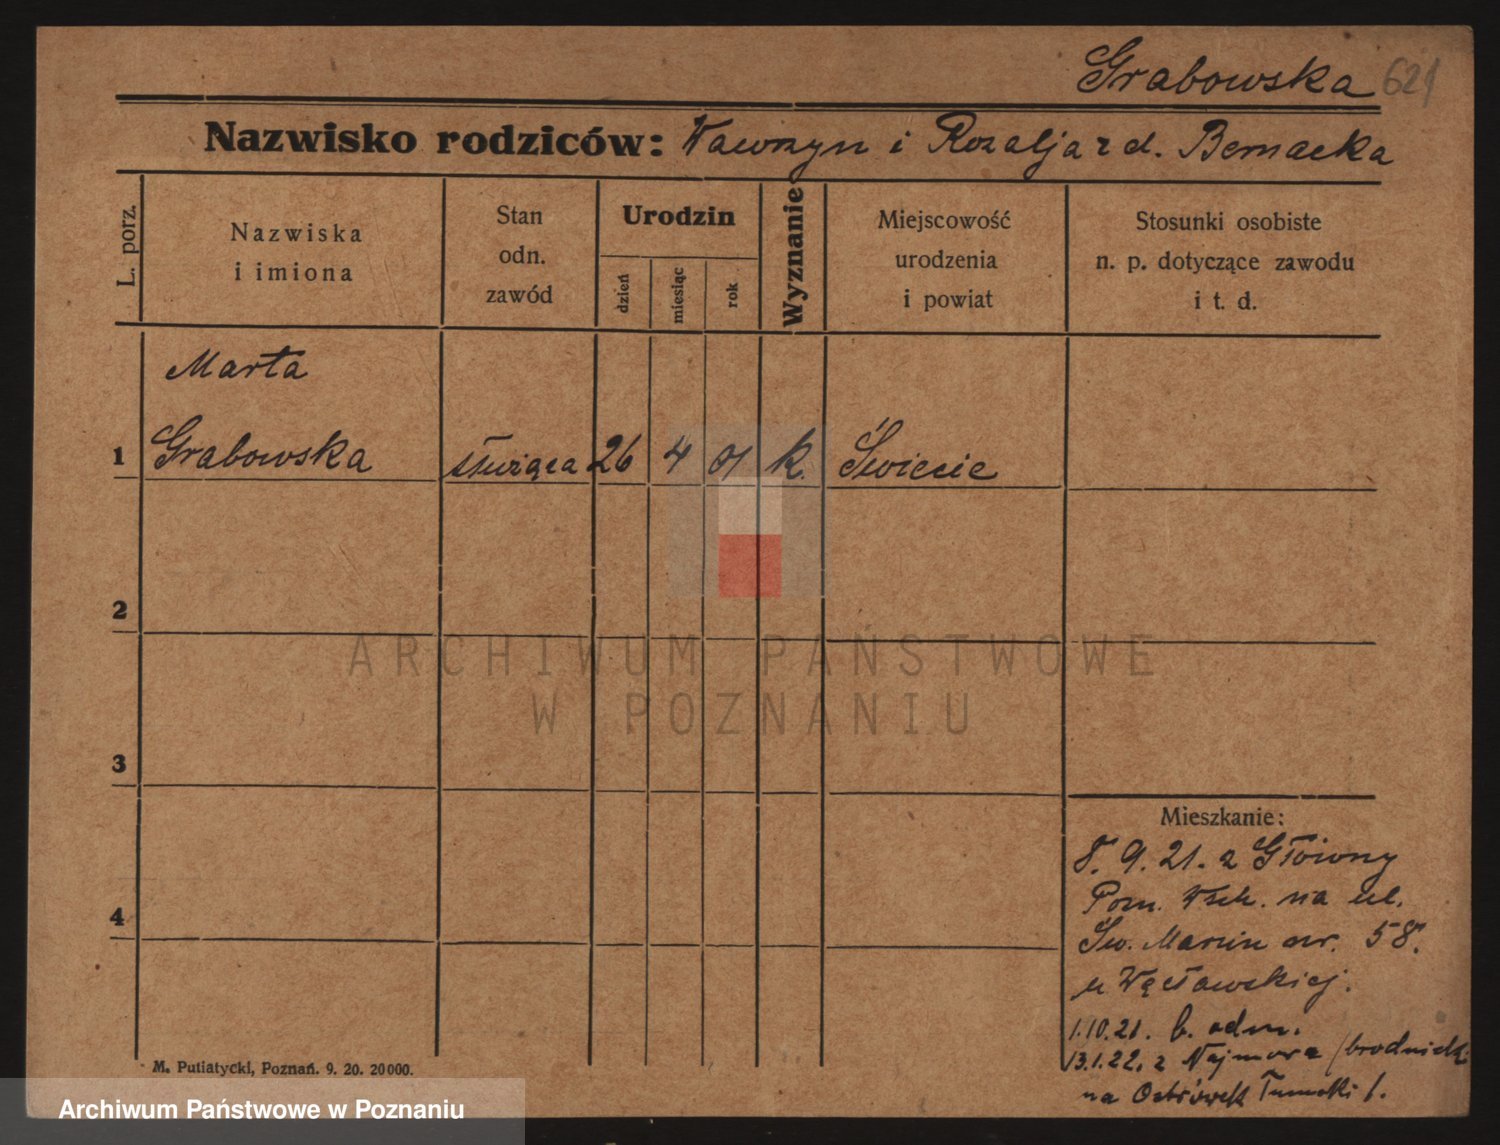 Grabowska 621
Nazwisko rodziców: Wawrzyn i Rozalja z d. Bernacka
L. porz.
Nazwiska
i imiona
Stan
odn.
zawód
Urodzin
dzień
miesiąc
rok
Wyznanie
Miejscowość
urodzenia
i powiat
Stosunki osobiste
n. p. dotyczące zawodu
i t. d.
Marta
1 Grabowska służąca 26 4 01 k. Świecie
2
3
4
ARCHIWUM PAŃSTWOWE
W POZNANIU
Mieszkanie:
8. 9. 21. z Główny
Pozn. Wsch. na ul.
Św. Marcin nr. 58.
u Węcławskiej.
1.10.21. b. adm.
13.1.22. z
na Ostrówek Tumski 1.
M. Putiatycki, Poznań. 9. 20. 20000.
Archiwum Państwowe w Poznaniu